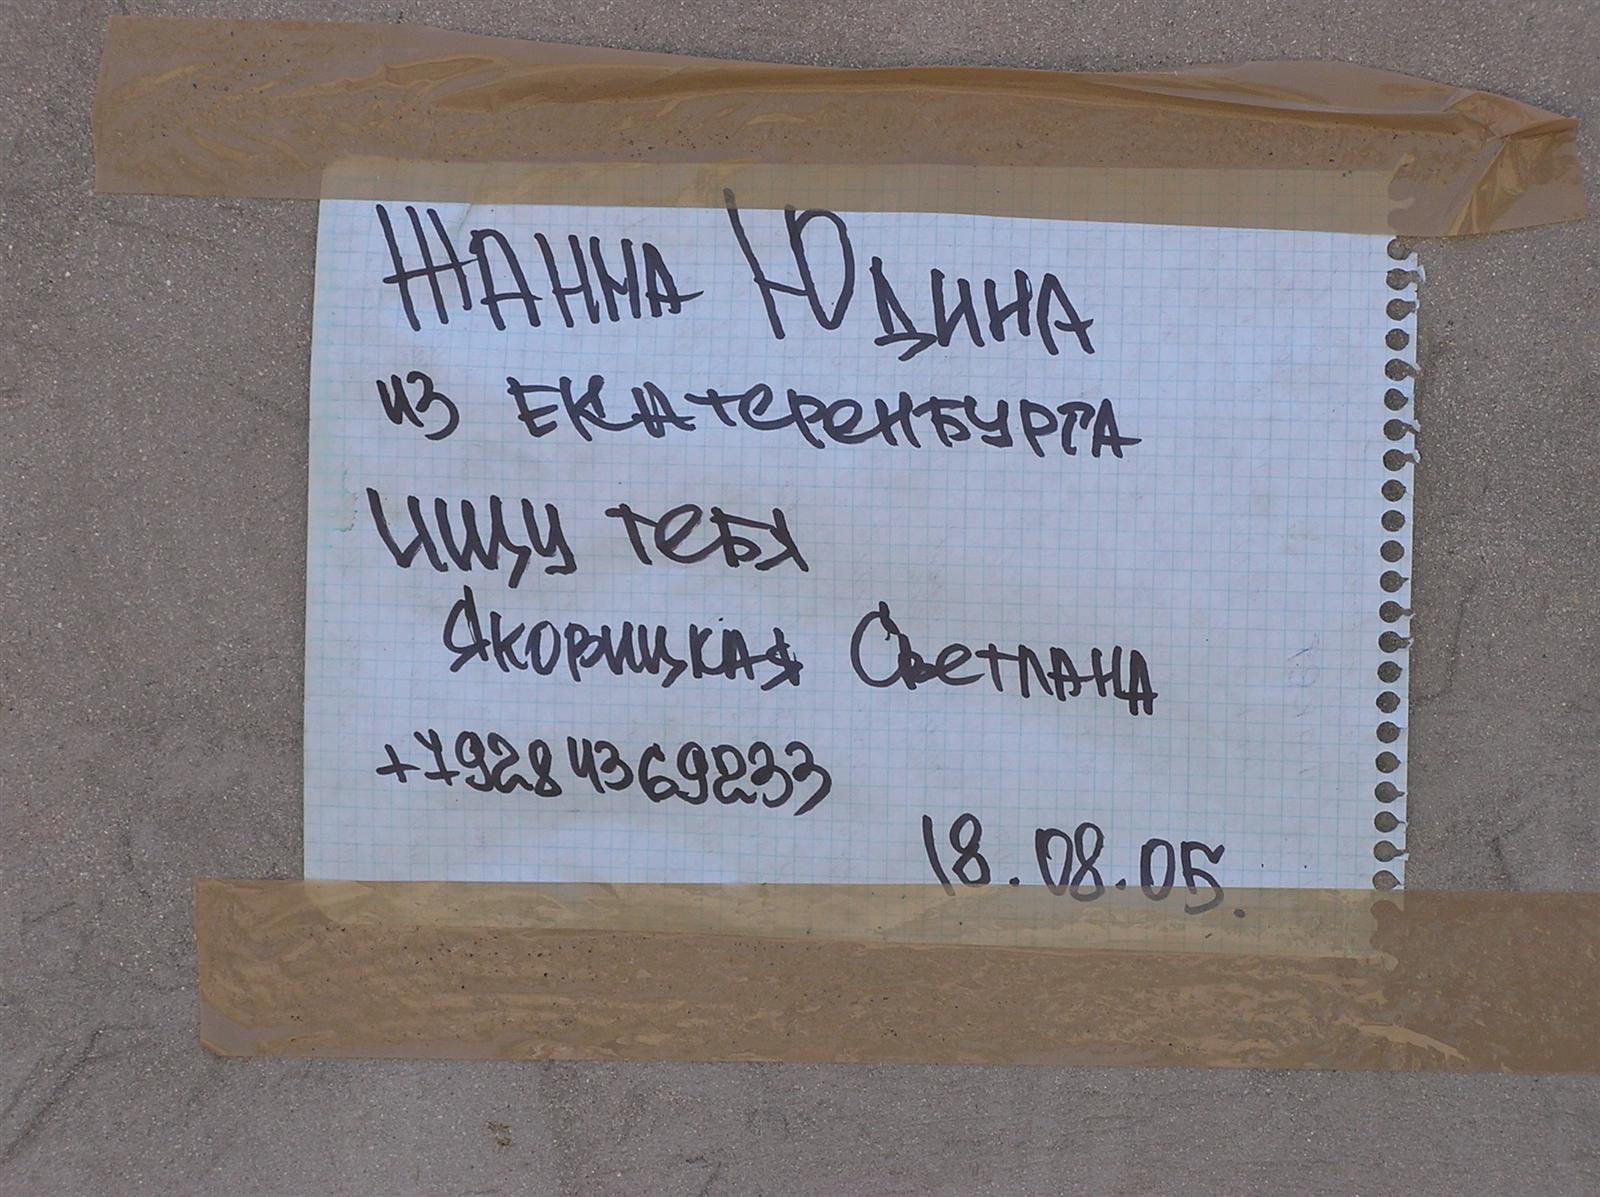 Жанна Юдина
из Екатеренбурга
ищу тебя
Якорицкая Светлана
+79284369233
18.08.05.